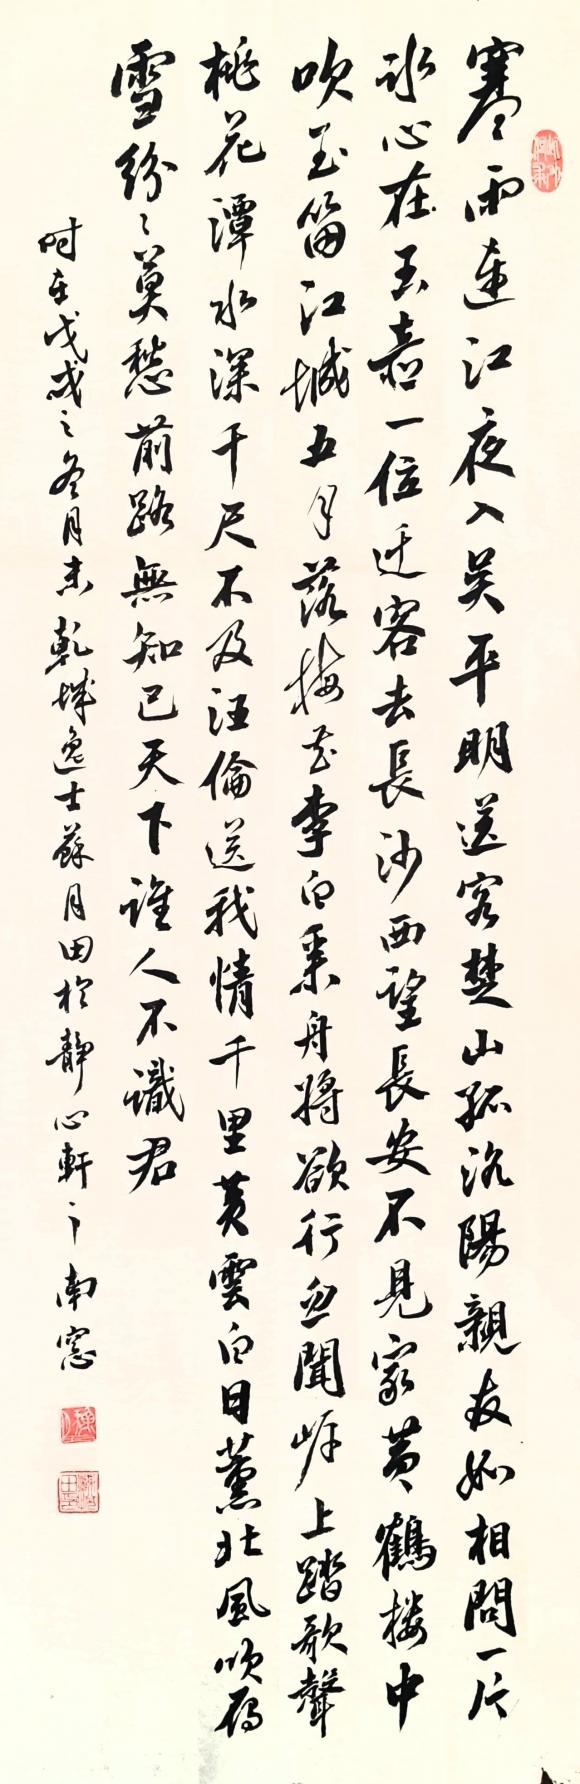 寒雨連江夜入吳平明送客楚山孤洛陽親友如相問一片
冰心在玉壺一位迁客去長沙西望長安不見家黃鶴楼中
吹玉笛江城五月落梅花李白乘舟將欲行忽聞岸上踏歌聲
桃花潭水深千尺不及汪倫送我情千里黃雲白日薰北風吹雁
雪紛々莫愁前路無知己天下誰人不識君
時在戊戌之冬月末乾城逸士蘇月田於靜心軒之南窓